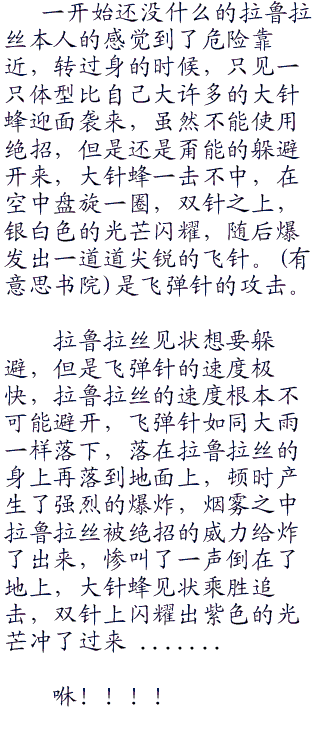 一开始还没什么的拉鲁拉
丝本人的感觉到了危险靠
近，转过身的时候，只见一
只体型比自己大许多的大针
蜂迎面袭来，虽然不能使用
绝招，但是还是甭能的躲避
开来，大针蜂一击不中，在
空中盘旋一圈，双针之上，
银白色的光芒闪耀，随后爆
发出一道道尖锐的飞针。(有
意思书院)是飞弹针的攻击。
拉鲁拉丝见状想要躲
避，但是飞弹针的速度极
快，拉鲁拉丝的速度根本不
可能避开，飞弹针如同大雨
一样落下，落在拉鲁拉丝的
身上再落到地面上，顿时产
生了强烈的爆炸，烟雾之中
拉鲁拉丝被绝招的威力给炸
了出来，惨叫了一声倒在了
地上，大针蜂见状乘胜追
击，双针上闪耀出紫色的光
芒冲了过来 .......
咻！！！！